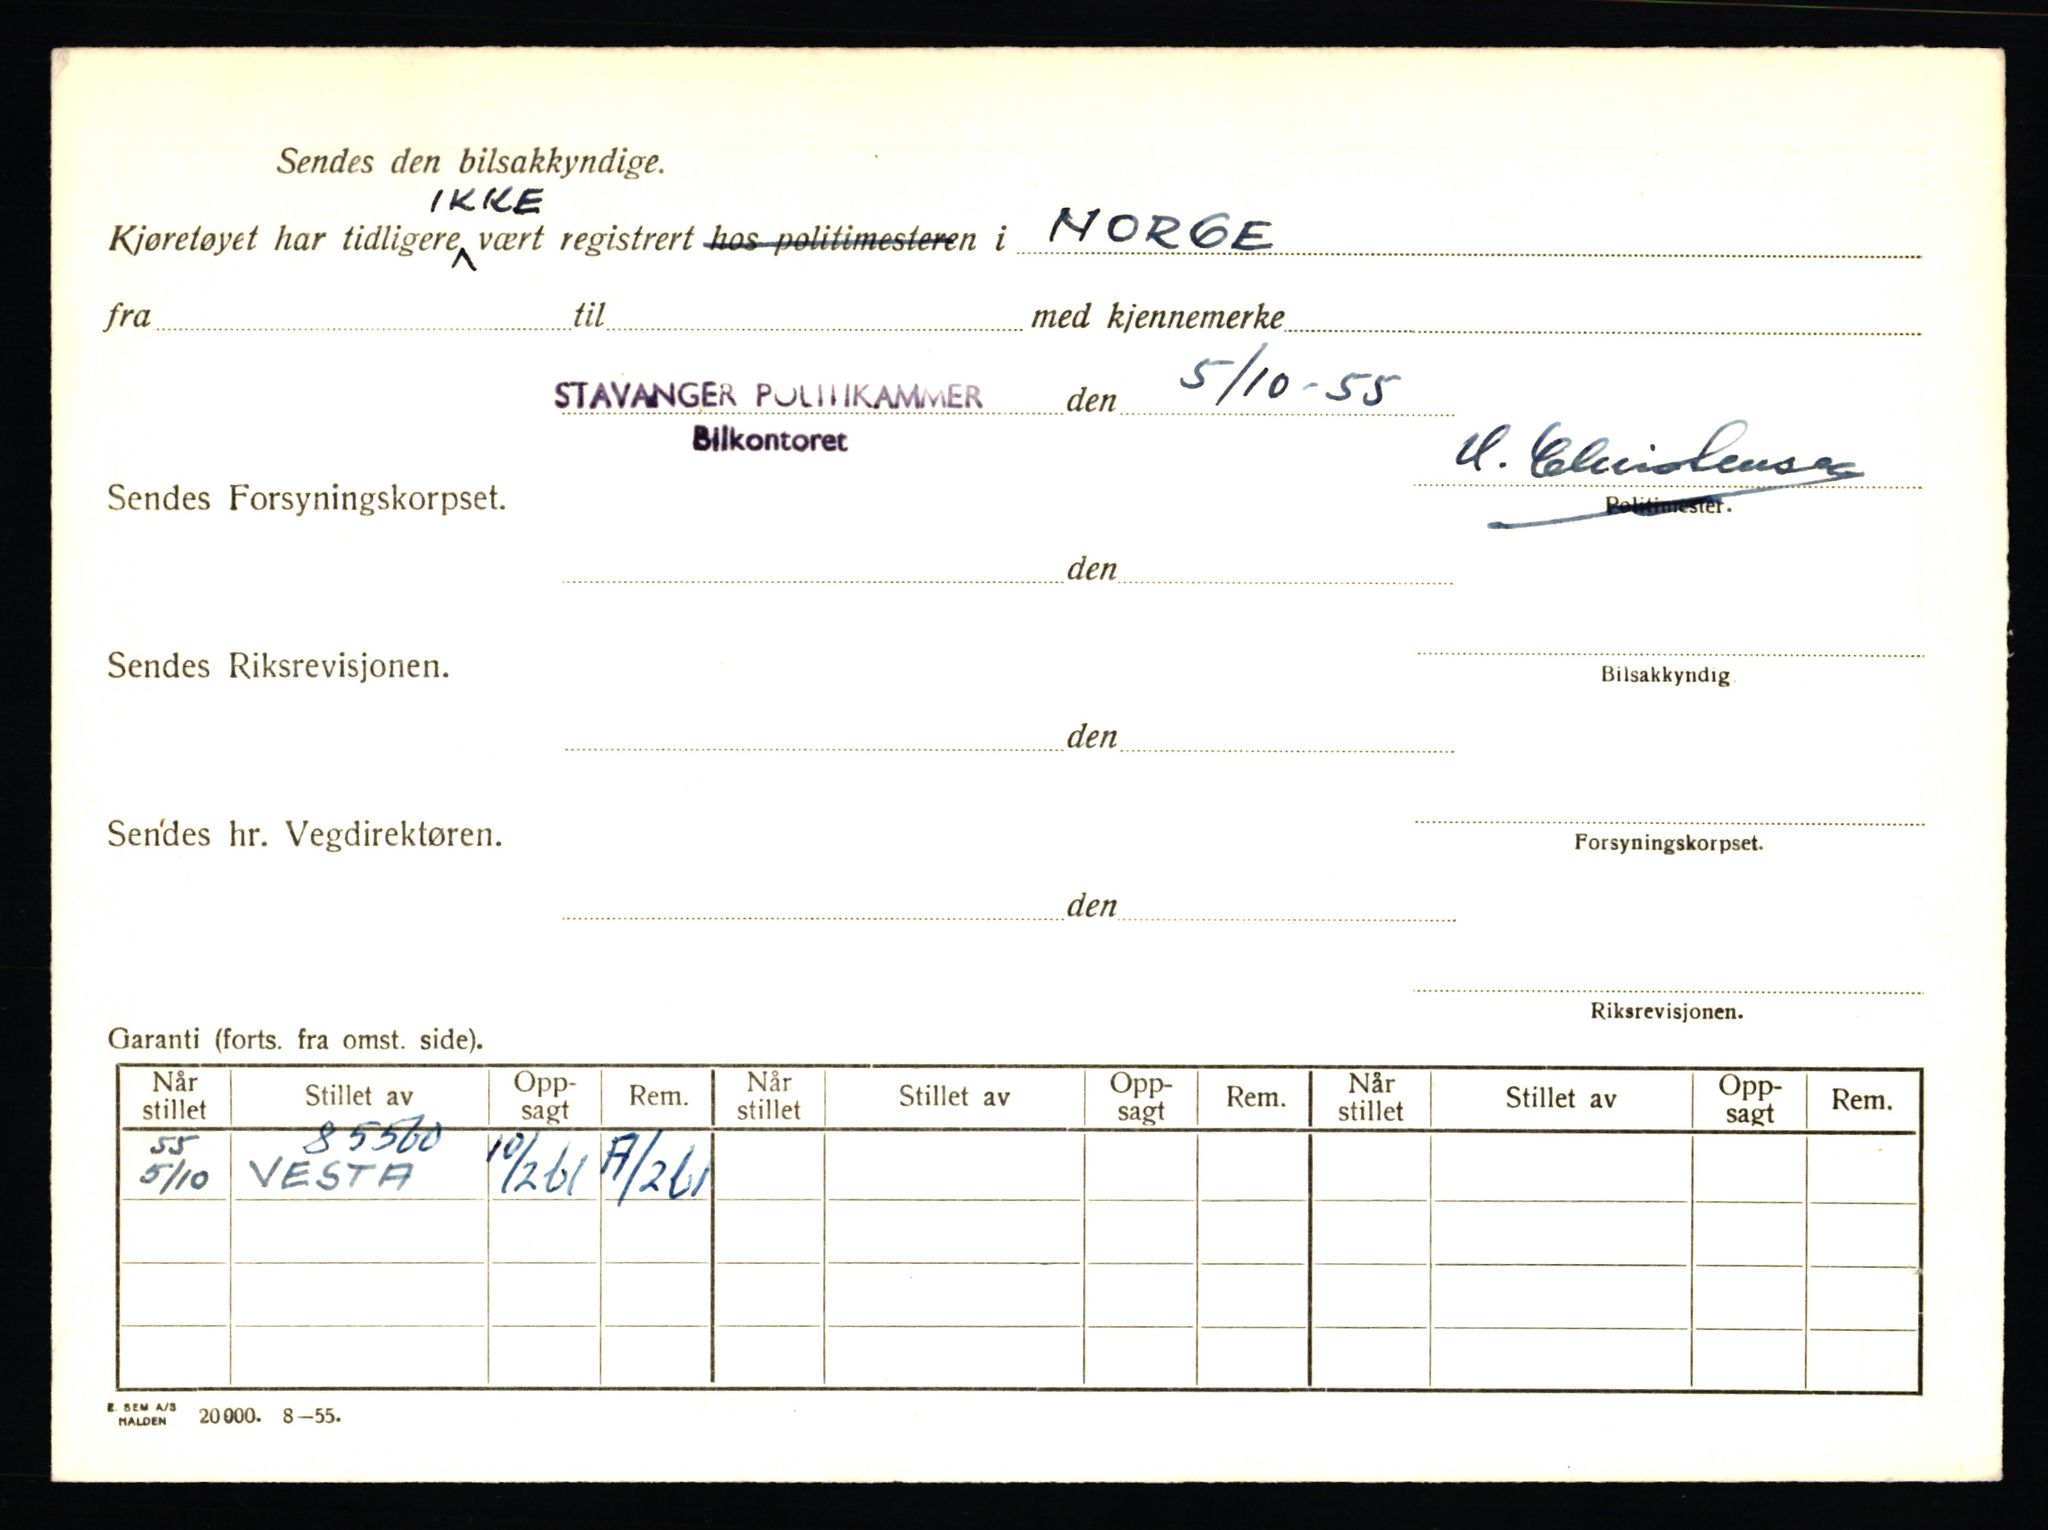 Sendes den bilsakkyndige.
IKKE
Kjøretøyet har tidligere vært registrert hos politimesteren i NORGE
fra til med kjennemerke
STAVANGER POLITIKAMMER den 5/10-55
Bilkontoret
H. Christensen
Sendes Forsyningskorpset. Politimester.
den
Sendes Riksrevisjonen. Bilsakkyndig
den
Sendes hr. Vegdirektøren. Forsyningskorpset.
den
Riksrevisjonen.
Garanti (forts. fra omst. side).
Når stillet Stillet av Opp-sagt Rem. Når stillet Stillet av Opp-sagt Rem. Når stillet Stillet av Opp-sagt Rem.
55 85560
5/10 VESTA 10/2 61 /2 61
E. SEM A/S
HALDEN 20000. 8—55.